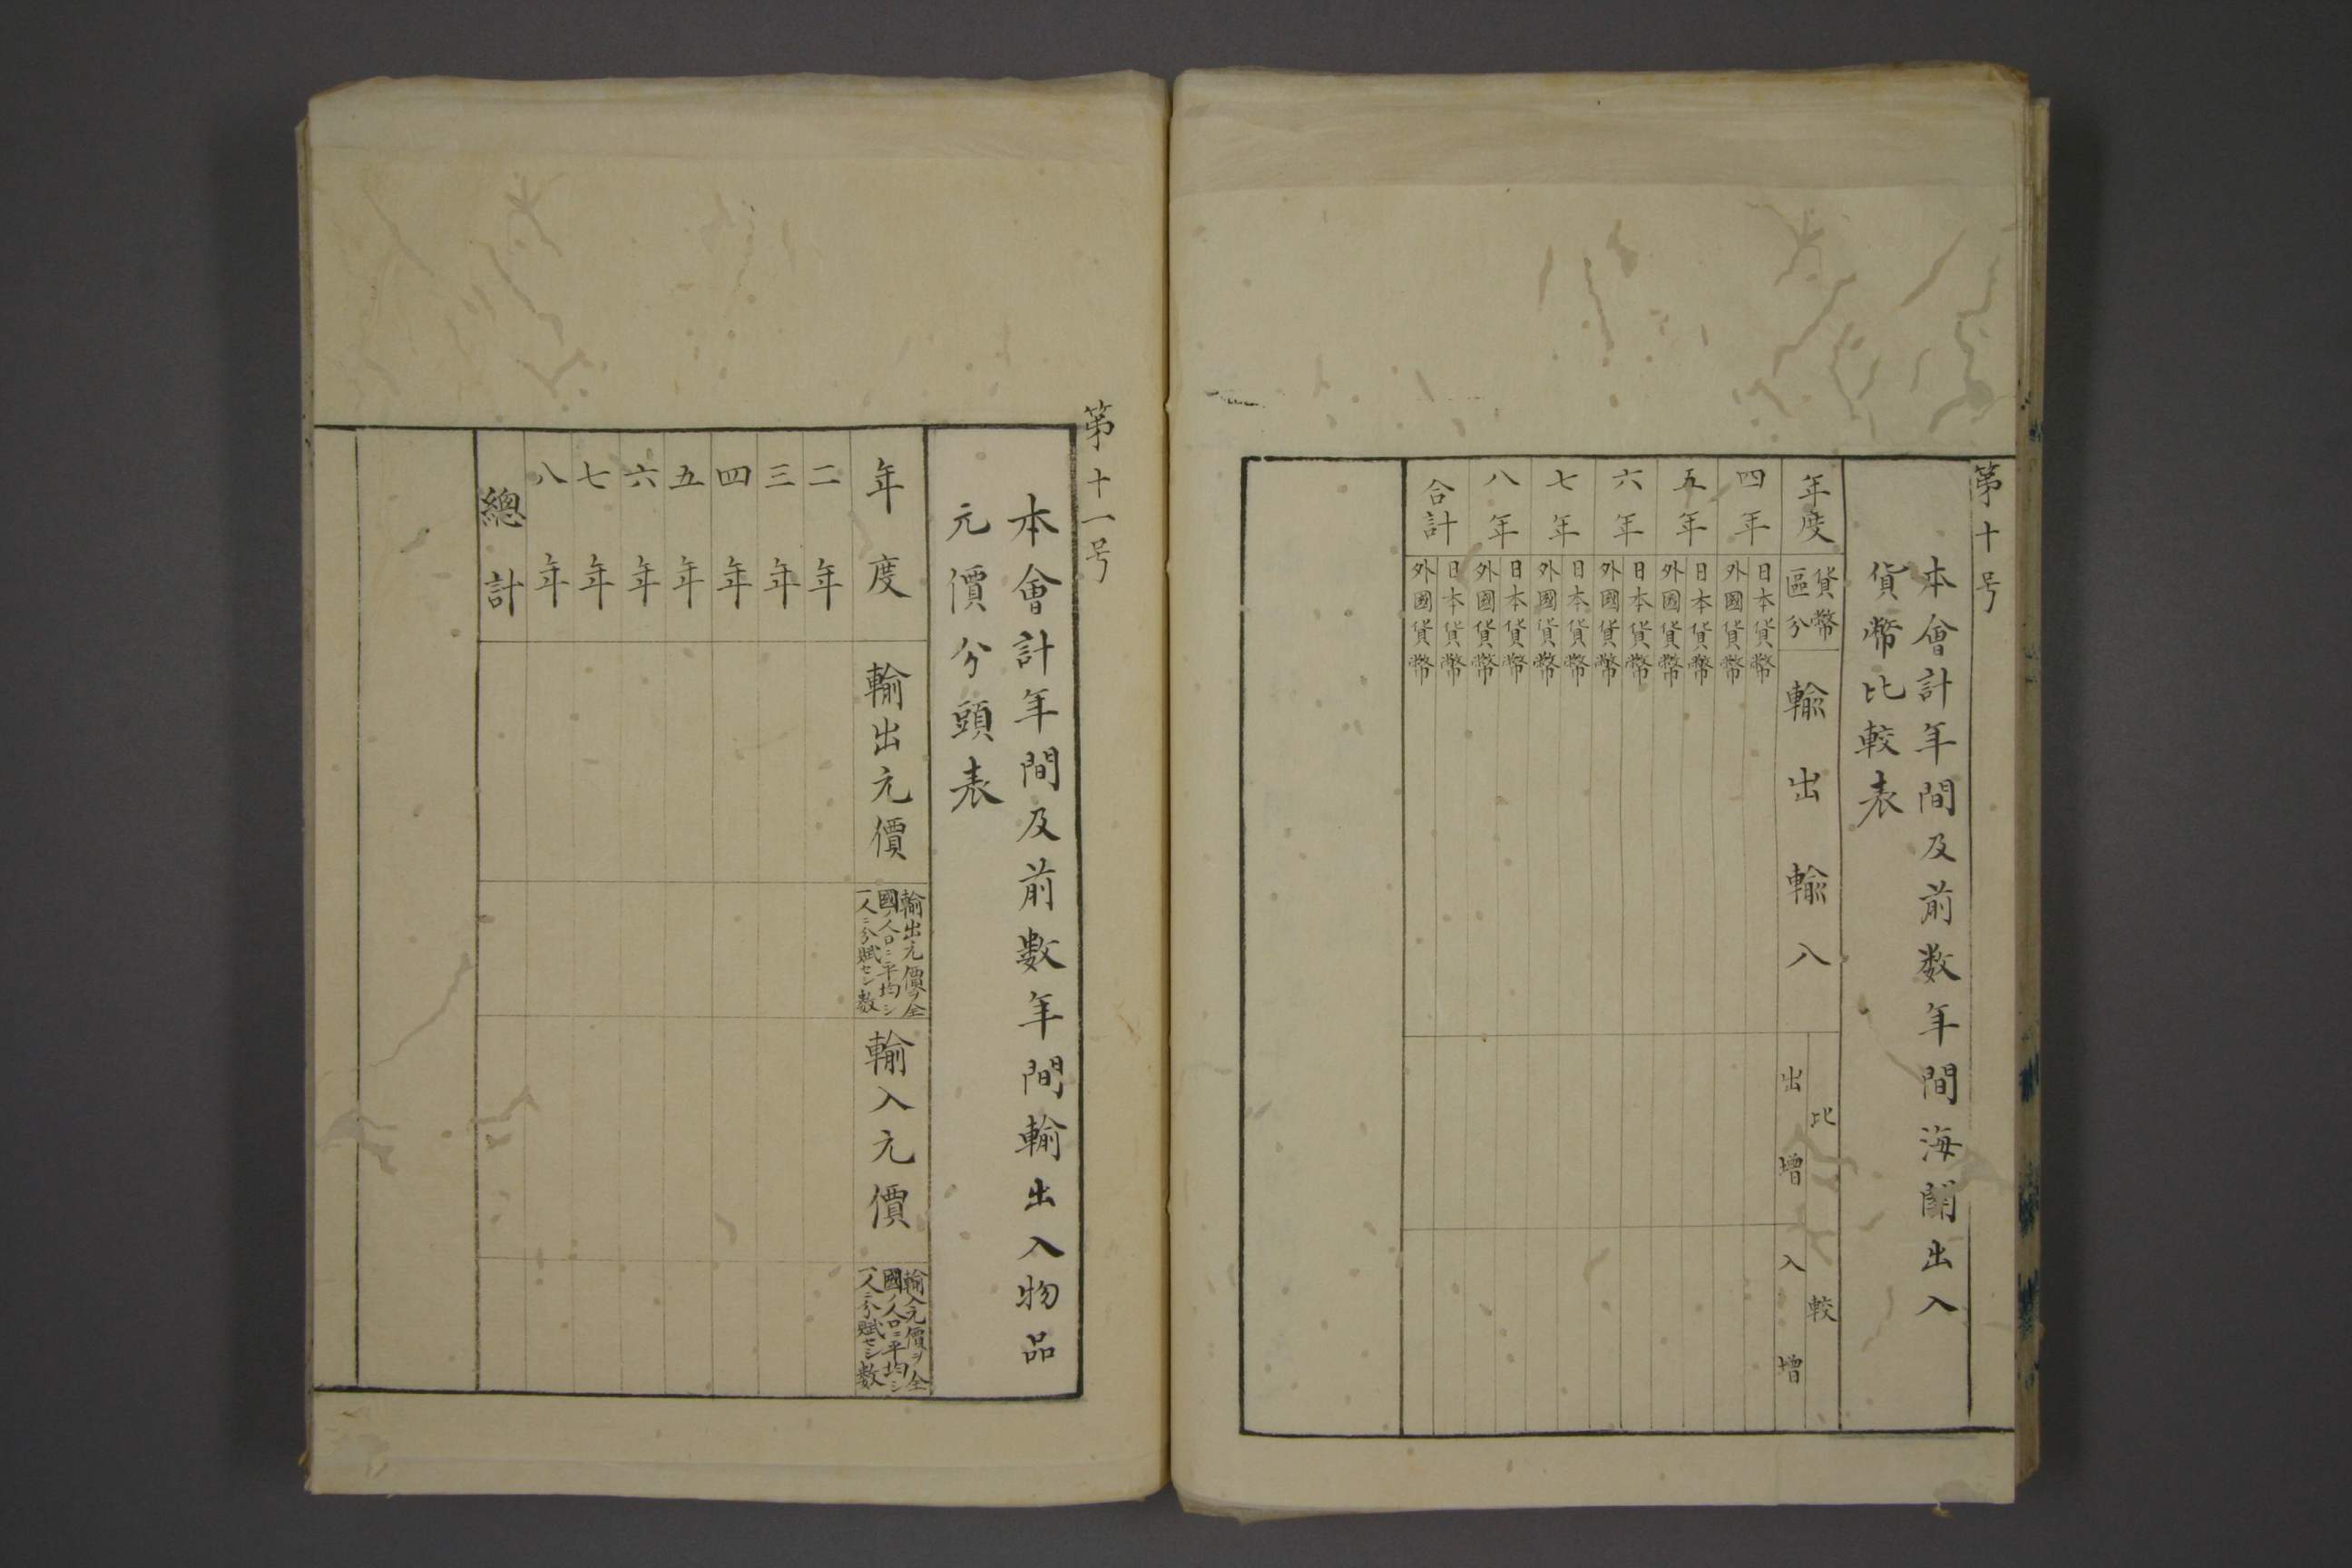 第十号
本會計年間及前数年間海關出入
貨幣比較表
年度
貨幣
區分
輸出
輸入
比較
出増
入増
四年
日本貨幣
外國貨幣
五年
日本貨幣
外國貨幣
六年
日本貨幣
外國貨幣
七年
日本貨幣
外國貨幣
八年
日本貨幣
外國貨幣
合計
日本貨幣
外國貨幣
第十一号
本會計年間及前數年間輸出入物品
元價分頭表
年度
輸出元價
輸出元價ヲ全
國ノ人口ニ平均シ
一人ニ分賦セシ数
輸入元價
輸入元價ヲ全
國ノ人口ニ平均シ
一人ニ分賦セシ数
二年
三年
四年
五年
六年
七年
八年
總計